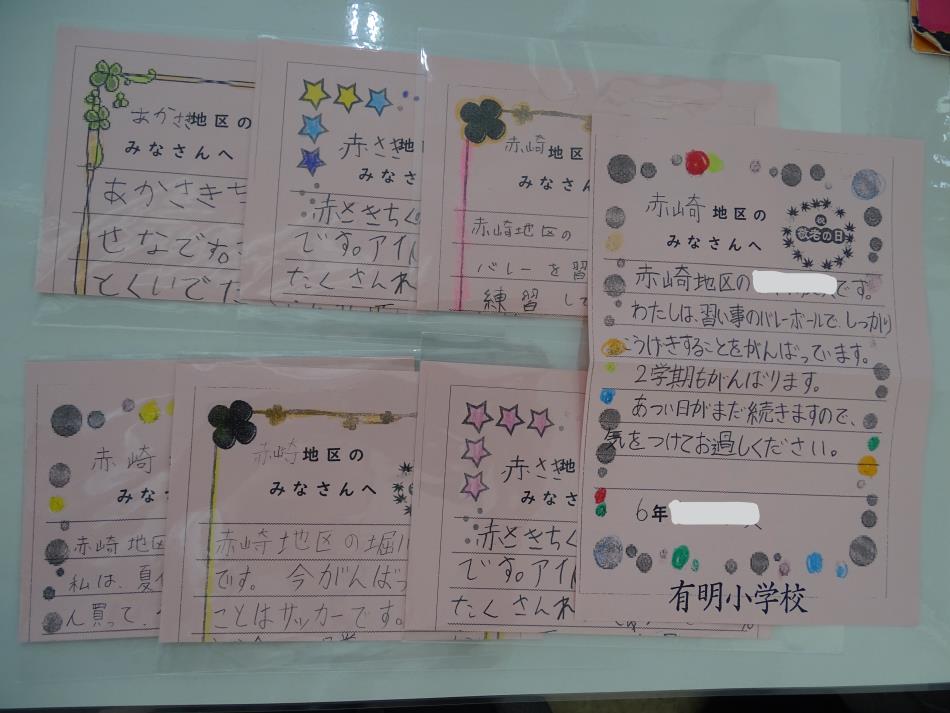 あかさき地区の
みなさんへ
あかさきち
せなです。
とくいでた
赤さき地
みなさ
赤さきちく
です。アイ
たくさんれ
赤崎地区
みなさん
赤崎地区の
バレーを習
練習して
赤崎地区の
みなさんへ
祝
敬老の日
赤崎地区の
です。
わたしは、習い事のバレーボールで、しっかり
こうげきすることをがんばっています。
2学期もがんばります。
あつい日がまだ続きますので、
気をつけてお過しください。
6年
有明小学校
赤崎
みな
赤崎地区
私は、夏
ん買って、
赤崎地区の
みなさんへ
赤崎地区の堀
です。今がんばっ
ことはサッカーです。
赤さき地
みなさ
赤さきちく
です。アイ
たくさんれ